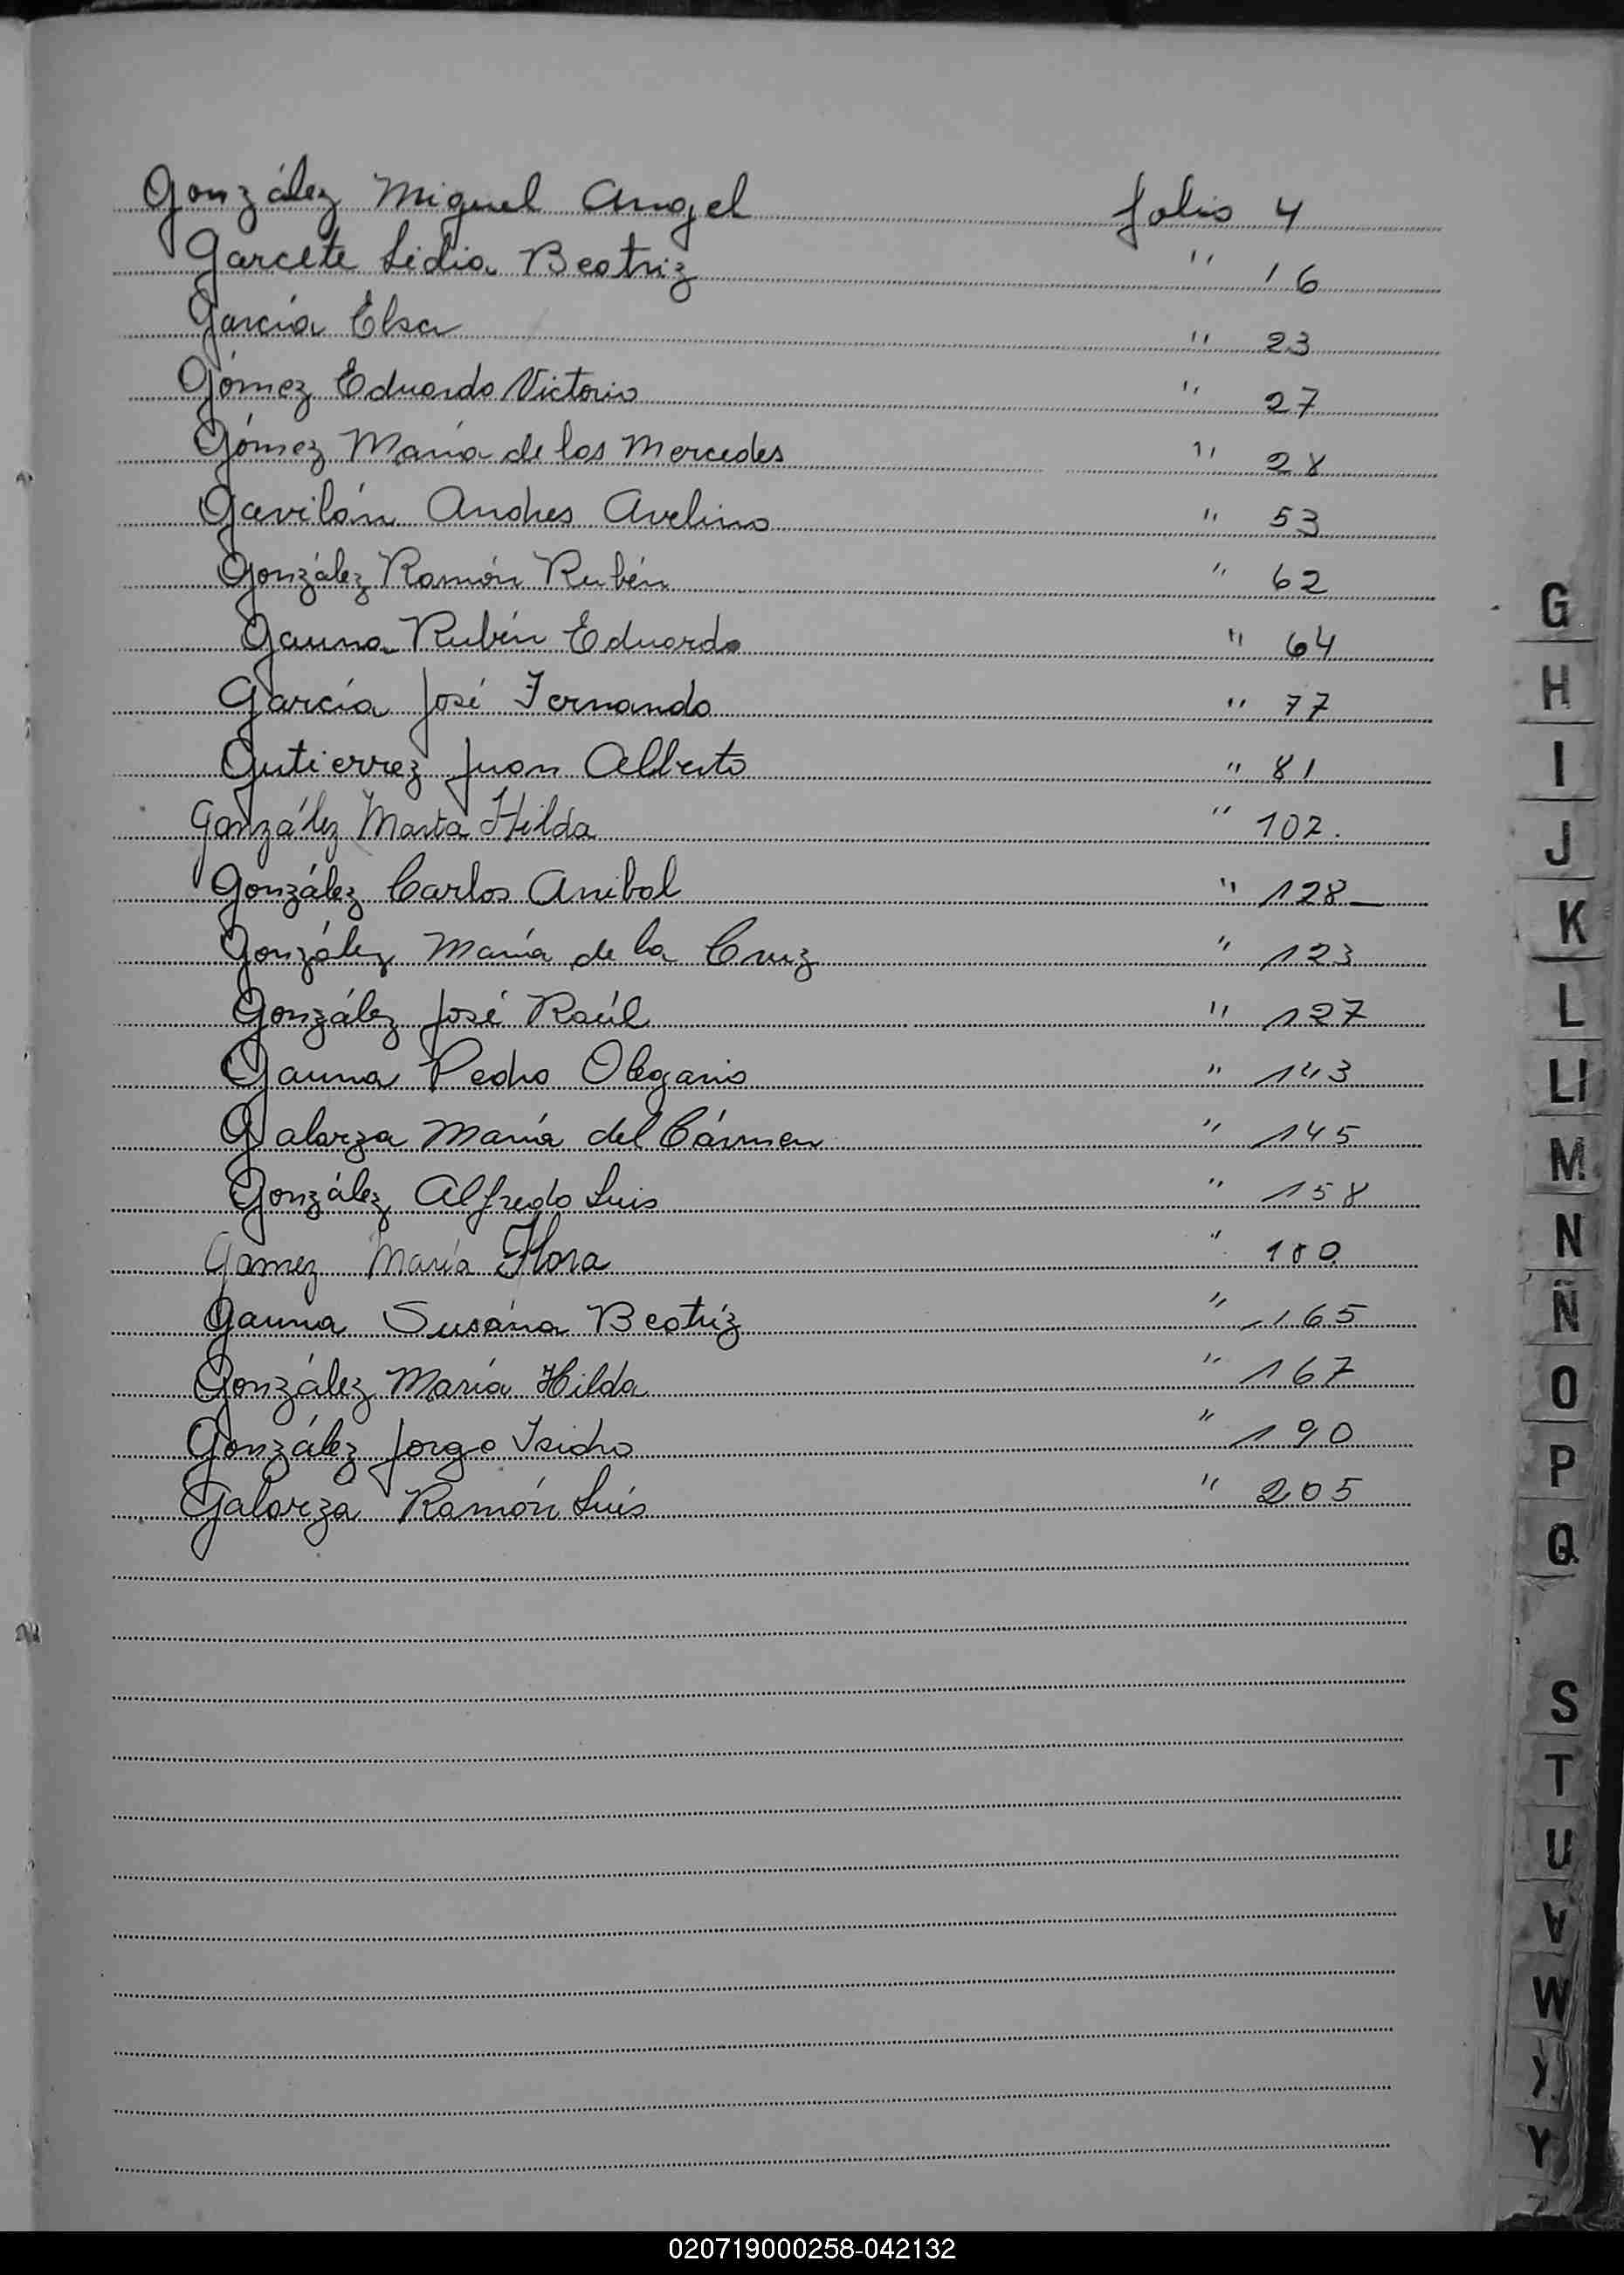 González Miguel Angel folio 4
Garcete Lidia Beatriz " 16
García Elsa " 23
Gómez Eduardo Victorio " 27
Gómez María de las Mercedes " 28
Gavilán Andres Avelino " 53
González Ramón Rubén " 62
Gauna Rubén Eduardo " 64
García José Fernando " 77
Gutierrez Juan Alberto " 81
González Marta Hilda " 102.
González Carlos Anibal " 128
González María de la Cruz " 123
González José Raúl " 127
Gauna Pedro Olegario " 143
Galarza María del Cármen " 145
González Alfredo Luis " 158
Gamez María Flora "
Gauna Susána Beatríz " 165
González María Hilda " 167
González Jorge Isidro " 190
Galarza Ramón Luís " 205
G
H
I
J
K
L
Ll
M
N
Ñ
O
P
Q
S
T
U
V
W
Y
Y
Z
020719000258-042132